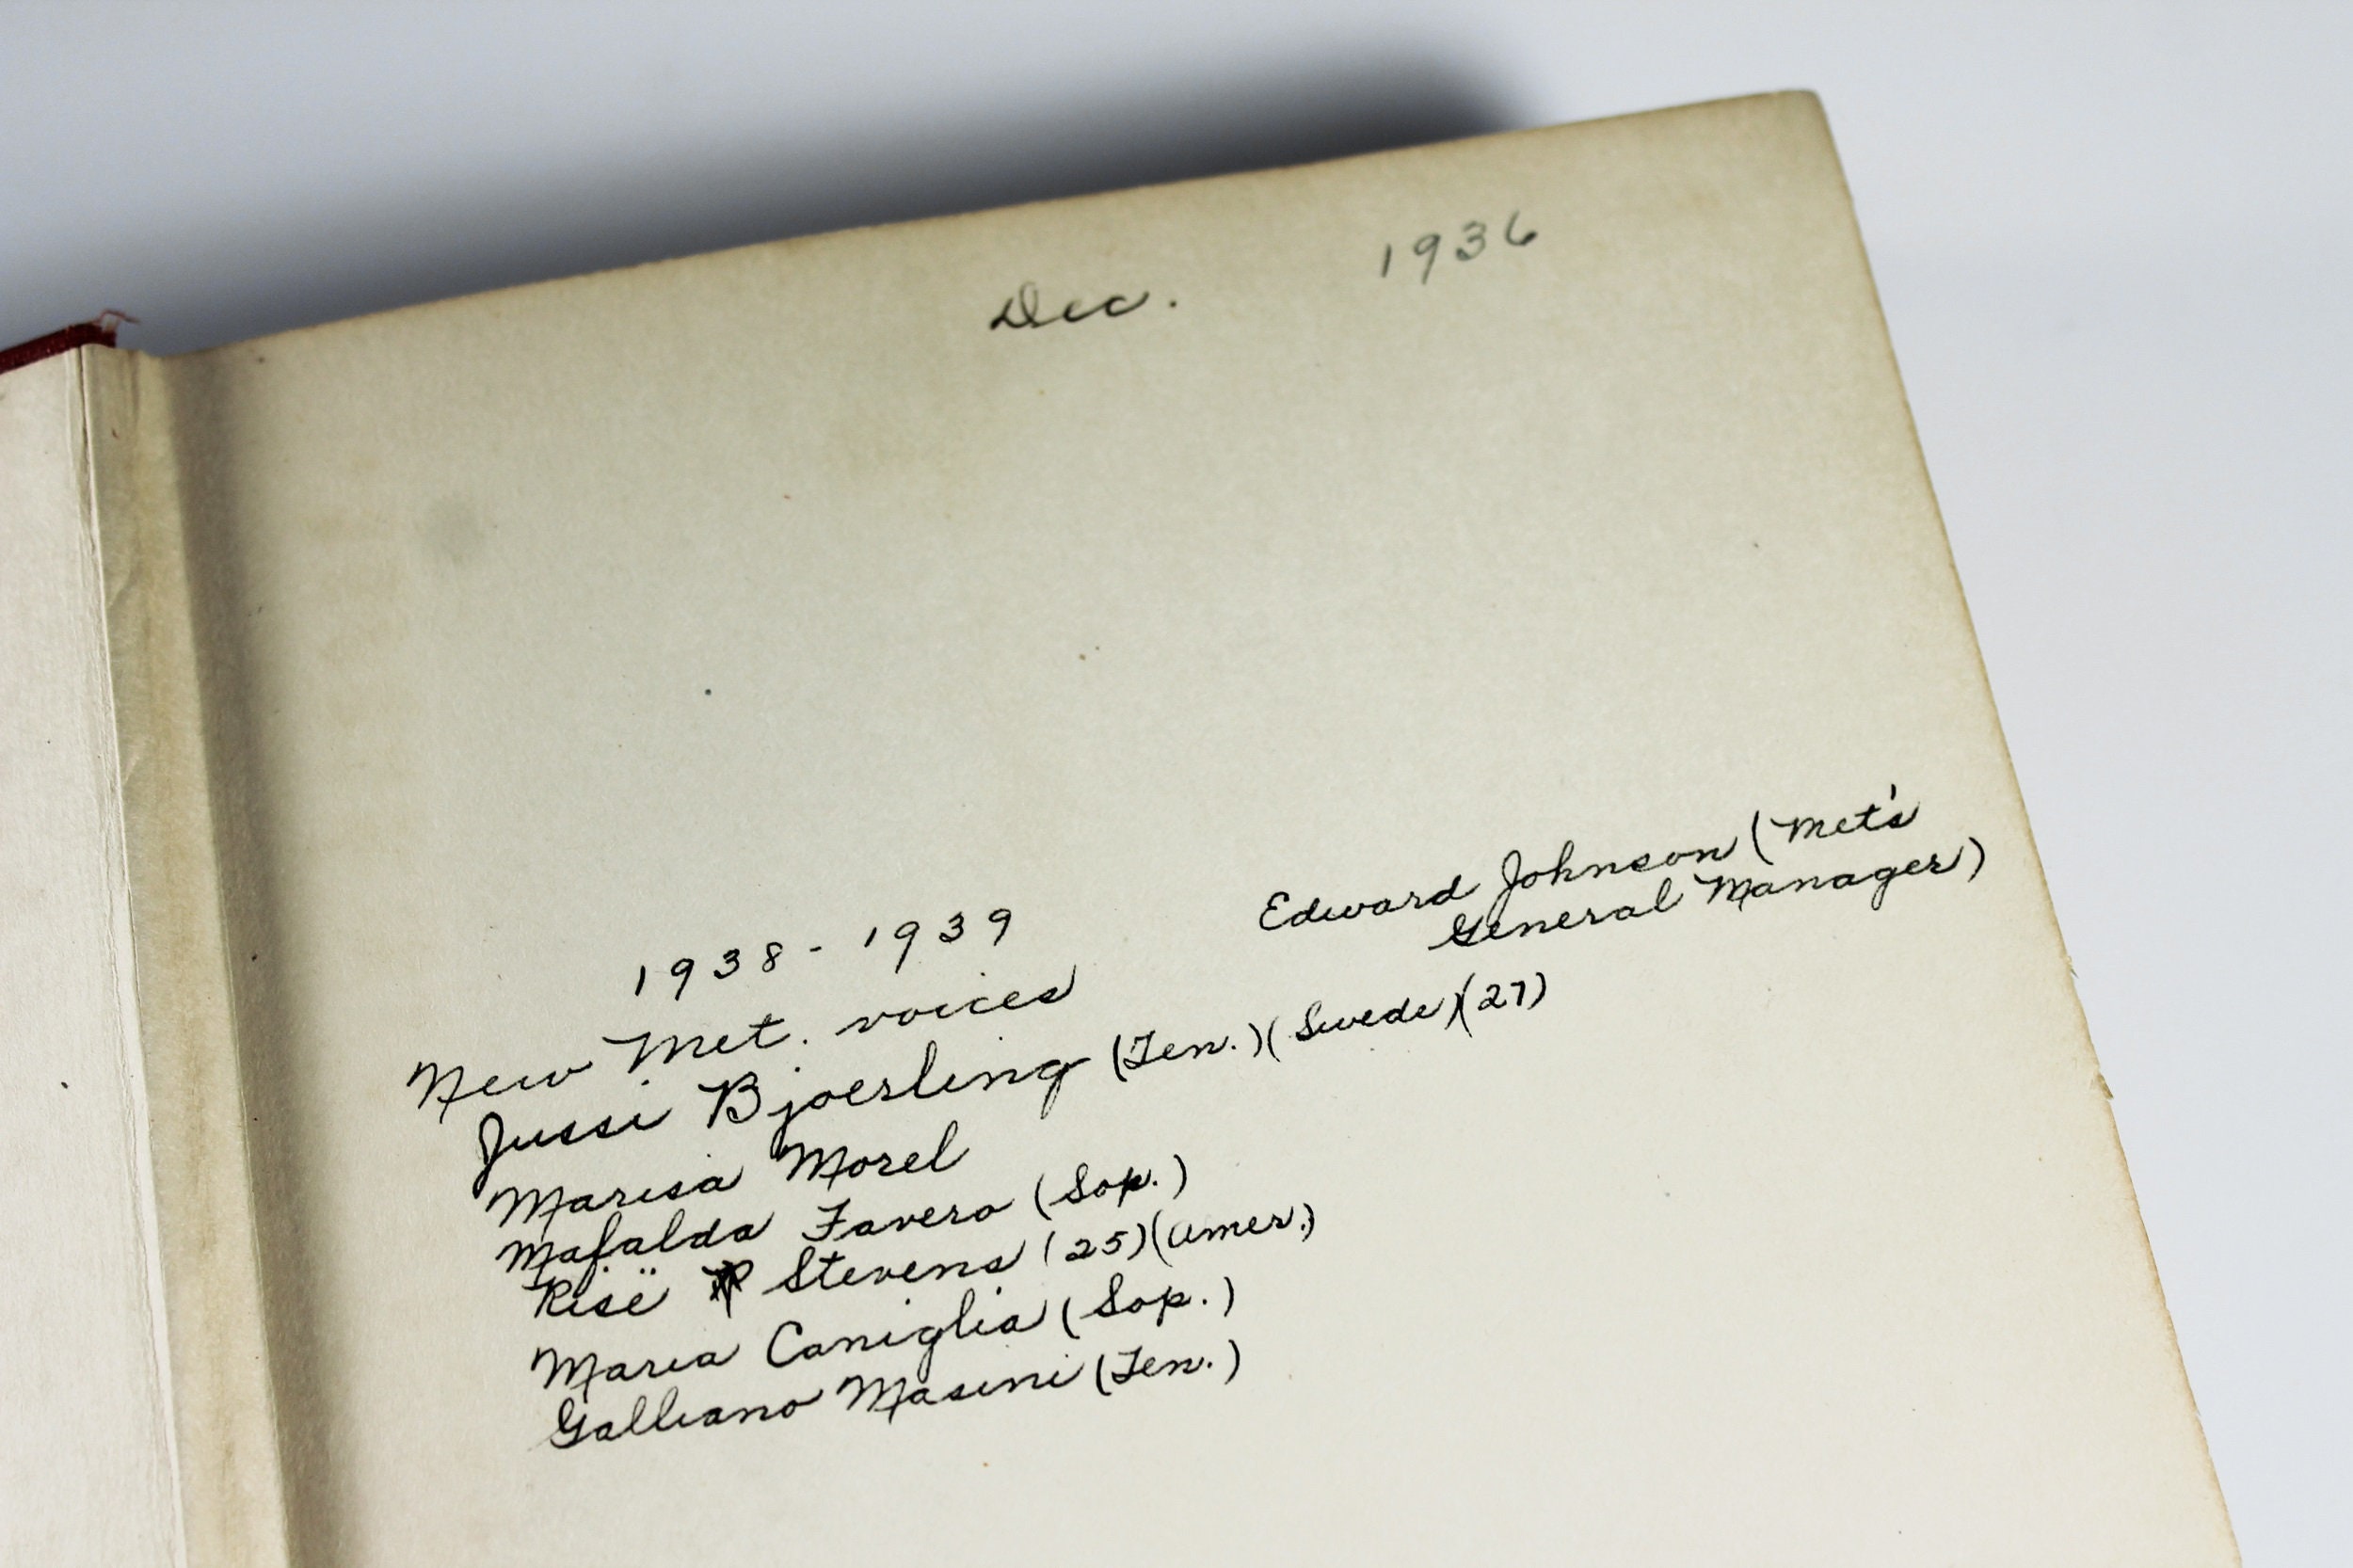 Dec. 1936
Edward Johnson (Met's
General Manager)
1938-1939
New Met. voices
Jussi Bjoerling (Ten.) (Swede) (27)
Marisa Morel
Mafalda Favero (Sop.)
Risë Stevens (25) (Amer.)
Maria Caniglia (Sop.)
Galliano Masini (Ten.)